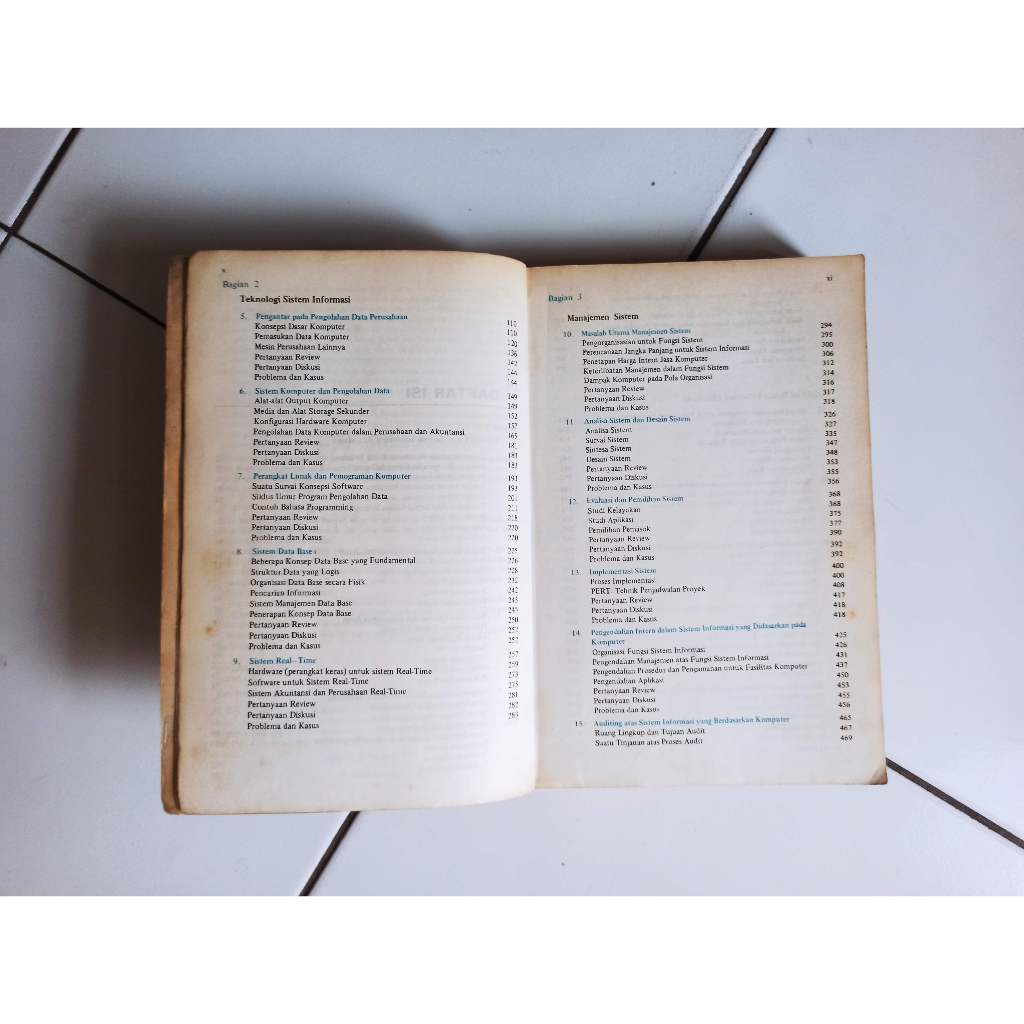 x
Bagian 2
Teknologi Sistem Informasi
5. Pengantar pada Pengolahan Data Perusahaan 110
Konsepsi Dasar Komputer 110
Pemasukan Data Komputer 120
Mesin Perusahaan Lainnya
Pertanyaan Review 142
Pertanyaan Diskusi
Problema dan Kasus 144
6. Sistem Komputer dan Pengolahan Data 149
Alat-alat Output Komputer 149
Media dan Alat Storage Sekunder 152
Konfigurasi Hardware Komputer 157
Pengolahan Data Komputer dalam Perusahaan dan Akuntansi 165
Pertanyaan Review 181
Pertanyaan Diskusi 183
Problema dan Kasus 183
7. Perangkat Lunak dan Pemograman Komputer 193
Suatu Survai Konsepsi Software 193
Siklus Umur Program Pengolahan Data 201
Contoh Bahasa Programming 211
Pertanyaan Review 218
Pertanyaan Diskusi 220
Problema dan Kasus 220
8. Sistem Data Base 225
Beberapa Konsep Data Base yang Fundamental 226
Struktur Data yang Logis 228
Organisasi Data Base secara Fisik 232
Pencarian Informasi 242
Sistem Manajemen Data Base 243
Penerapan Konsep Data Base 245
Pertanyaan Review 250
Pertanyaan Diskusi 252
Problema dan Kasus 252
9. Sistem Real-Time 257
Hardware (perangkat keras) untuk sistem Real-Time 259
Software untuk Sistem Real-Time 273
Sistem Akuntansi dan Perusahaan Real-Time 275
Pertanyaan Review 281
Pertanyaan Diskusi 282
Problema dan Kasus 283
xi
Bagian 3
Manajemen Sistem
10. Masalah Utama Manajemen Sistem 294
Pengorganisasian untuk Fungsi Sistem 295
Perencanaan Jangka Panjang untuk Sistem Informasi 300
Penetapan Harga Intern Jasa Komputer 306
Keterlibatan Manajemen dalam Fungsi Sistem 312
Dampak Komputer pada Pola Organisasi 314
Pertanyaan Review 316
Pertanyaan Diskusi 317
Problema dan Kasus 318
11. Analisa Sistem dan Desain Sistem 326
Analisa Sistem 327
Survai Sistem 335
Sintesa Sistem 347
Desain Sistem 348
Pertanyaan Review 353
Pertanyaan Diskusi 355
Problema dan Kasus 356
12. Evaluasi dan Pemilihan Sistem 368
Studi Kelayakan 368
Studi Aplikasi 375
Pemilihan Pemasok 377
Pertanyaan Review 390
Pertanyaan Diskusi 392
Problema dan Kasus 392
13. Implementasi Sistem 400
Proses Implementasi 400
PERT: Tehnik Penjadwalan Proyek 408
Pertanyaan Review 417
Pertanyaan Diskusi 418
Problema dan Kasus 418
14. Pengendalian Intern dalam Sistem Informasi yang Didasarkan pada
Komputer 425
Organisasi Fungsi Sistem Informasi 426
Pengendalian Manajemen atas Fungsi Sistem Informasi 431
Pengendalian Prosedur dan Pengamanan untuk Fasilitas Komputer 437
Pengendalian Aplikasi 450
Pertanyaan Review 453
Pertanyaan Diskusi 455
Problema dan Kasus 456
15. Auditing atas Sistem Informasi yang Berdasarkan Komputer 465
Ruang Lingkup dan Tujuan Audit 467
Suatu Tinjauan atas Proses Audit 469